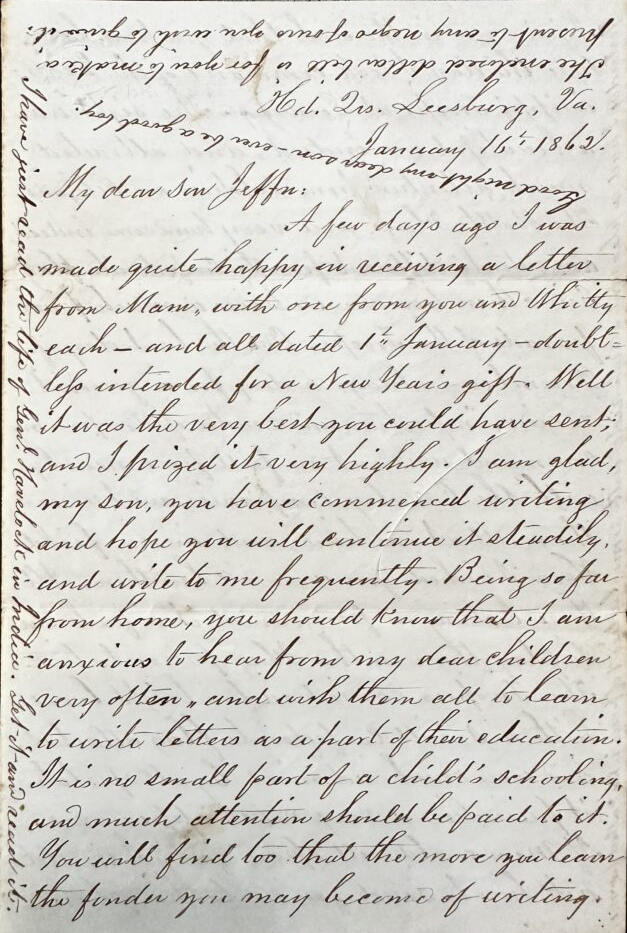 The enclosed dollar bill is for you to make a
present to any negro of ours you wish to give it.
Good night my dear son – ever be a good boy.
Hd. Qrs. Leesburg, Va.
January 16th 1862.
My dear son Jeffn:
A few days ago I was
made quite happy in receiving a letter
from Mam, with one from you and Whitty
each – and all dated 1st January – doubt=
less intended for a New Year's gift. Well
it was the very best you could have sent;
and I prized it very highly. I am glad,
my son, you have commenced writing
and hope you will continue it steadily,
and write to me frequently. Being so far
from home, you should know that I am
anxious to hear from my dear children
very often, and wish them all to learn
to write letters as a part of their education.
It is no small part of a child's schooling,
and much attention should be paid to it.
You will find too that the more you learn
the fonder you may become of writing.
I have just read the life of Genl. Havelock in India. Get it and read it.